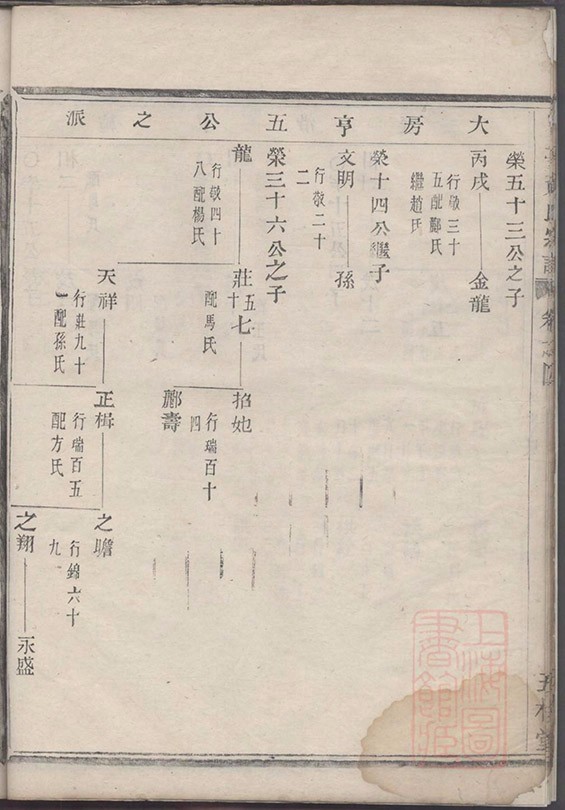 大房亨五公之派
榮五十三公之子
丙戌
行敬三十
五配酈氏
繼趙氏
金龍
榮十四公繼子
文明
行敬二十
二
孫
榮三十六公之子
龍
行敬四十
八配楊氏
莊五十七
配馬氏
掐她
行瑞百十
四
酈壽
天祥
行莊九十
一配孫氏
正楫
行瑞百五
配方氏
之瞻
行錦六十
九
之翔
永盛
上海圖書館藏